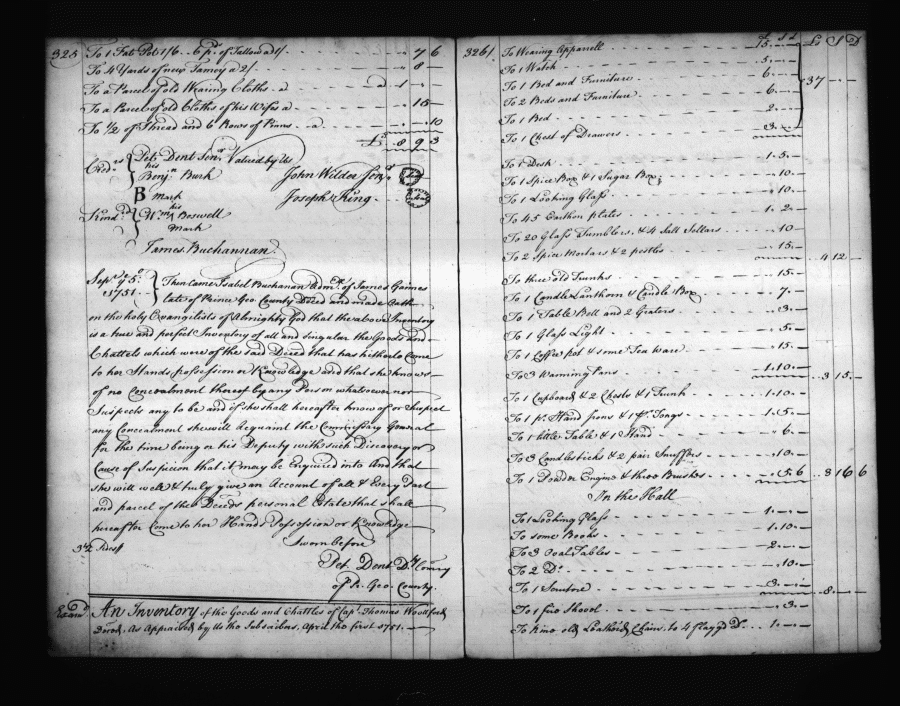 325
To 1 Fat Pot 1/6 .. 6 ps. of Tallow a 1/ .. 7 6
To 4 Yards of new Tamey a 2/ .. 8 -
To a Parcel of old Wearing Cloths .. a .. 1 - -
To a Parcel of old Cloths of his Wifes a .. 15 -
To 1/2 of Thread and 6 Rows of Pinns .. a .. 10
£ 8 9 3
Credrs. Petr. Dent Senr. Valued by Us
his
Benjn. Burk John Wilder Junr.
B mark Joseph King
his
Kindd. Wm. Boswell
mark
James Buchannan
Sepr. ye 5th.
1751
Then came Isabel Buchanan Admx. of James Gaines
late of Prince Geo County Deced and made Oath
on the holy Evangelists of Almighty God that the above Inventory
is a true and perfect Inventory of all and singular the Goods and
Chattels which were of the said Deced that has hitherto Come
to her Hands possession or Knowledge and that she knows
of no Concealment thereof by any Person whatsoever nor
Suspects any to be and if she shall hereafter know of or Suspect
any Concealment she will Acquaint the Commissary General
for the time being or his Deputy with such Discovery or
Cause of Suspicion that it may be Enquired into And that
she will well & truly give an Account of all & Every Part
and parcel of the Deceds personal Estate that shall
hereafter Come to her Hands Possession or Knowledge
Sworn before
Pet. Dent Dy. Comry
of Pr. Geo. County.
Examd. An Inventory of the Goods and Chattles of Capt. Thomas
Deced. As Appraised by Us the Subscribers, April the first 1751.
326
£ S D
To Wearing Apparell .. 15 - -
To 1 Watch .. 5 - -
To 1 Bed and Furniture .. 6 - -
To 2 Beds and Furniture .. 6 - -
To 1 Bed .. 2 - -
To 1 Chest of Drawers .. 3 - - 37 - -
To 1 Desk .. 1 . 5 -
To 1 Spice Box & 1 Sugar Box .. 10 -
To 1 Looking Glass .. 10 -
To 45 Earthen plates .. 1 . 2 -
To 20 Glass Tumblers, & 4 Salt Sellars .. 10 -
To 2 Spice Mortars & 2 pestles .. 15 - 4 12 -
To three old Trunks .. 15 -
To 1 Candle Lanthorn & Candle Box .. 7 -
To 1 Table Bell and 2 Graters .. 3 -
To 1 Glass Light .. 5 -
To 1 Coffee pot & some Tea Ware .. 15 -
To 3 Warming Pans .. 1 . 10 - 3 15 -
To 1 Cupboard & 2 Chests & 1 Trunk .. 1 . 10 -
To 1 pr. Hand Irons & 1 pr. Tongs .. 1 . 5 -
To 1 little Table & 1 Stand .. 6 -
To 3 Candlesticks & 2 pair Snuffers .. 10 -
To 1 Powder Engine & three Brushes .. 5 . 6 3 16 6
In the Hall
To 1 Looking Glass .. 1 - -
To some Books .. 1 . 10 -
To 3 Oval Tables .. 2 - -
To 2 Do. .. 10 -
To 1 .. 3 - - 8 - -
To 1 fire Shovel .. 3 -
To nine old Leathered Chairs, to 4 flagg'd Do. .. 1 - -